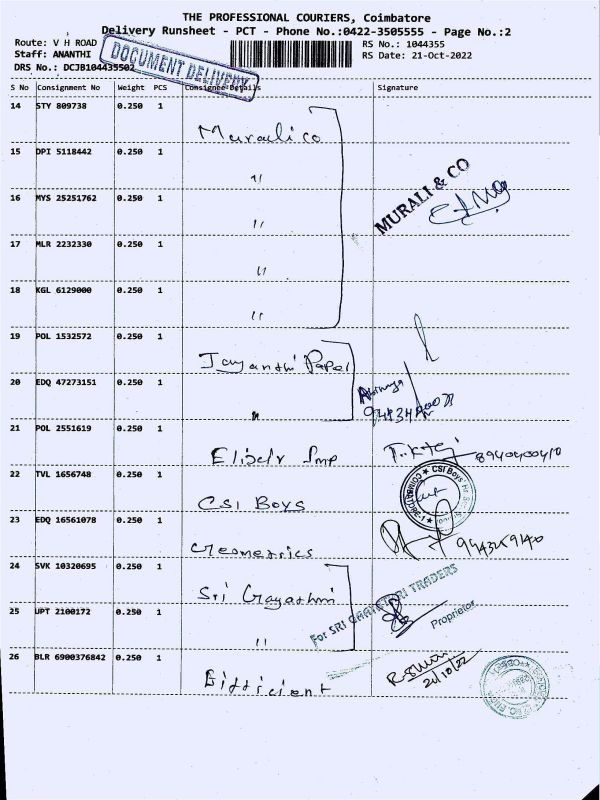 THE PROFESSIONAL COURIERS, Coimbatore
Delivery Runsheet - PCT - Phone No.:0422-3505555 - Page No.:2
Route: V H ROAD
Staff: ANANTHI
DRS No.: DCJB104435502
RS No.: 1044355
RS Date: 21-Oct-2022
DOCUMENT DELIVERY
S No Consignment No Weight PCS Consignee Details Signature
14 STY 809738 0.250 1 Murali co
15 DPI 5118442 0.250 1 "
16 MYS 25251762 0.250 1 "
MURALI & CO
17 MLR 2232330 0.250 1 "
18 KGL 6129000 0.250 1 "
19 POL 1532572 0.250 1 Jayanthi Paper
20 EDQ 47273151 0.250 1 "
21 POL 2551619 0.250 1
8940400410
22 TVL 1656748 0.250 1 CSI Boys
CSI Boys' Hr. Sec.
23 EDQ 16561078 0.250 1 Geometrics
24 SVK 10320695 0.250 1 Sri Gayathri
For SRI GAAYATRI TRADERS
Proprietor
25 UPT 2100172 0.250 1 "
26 BLR 6900376842 0.250 1
21/10/22